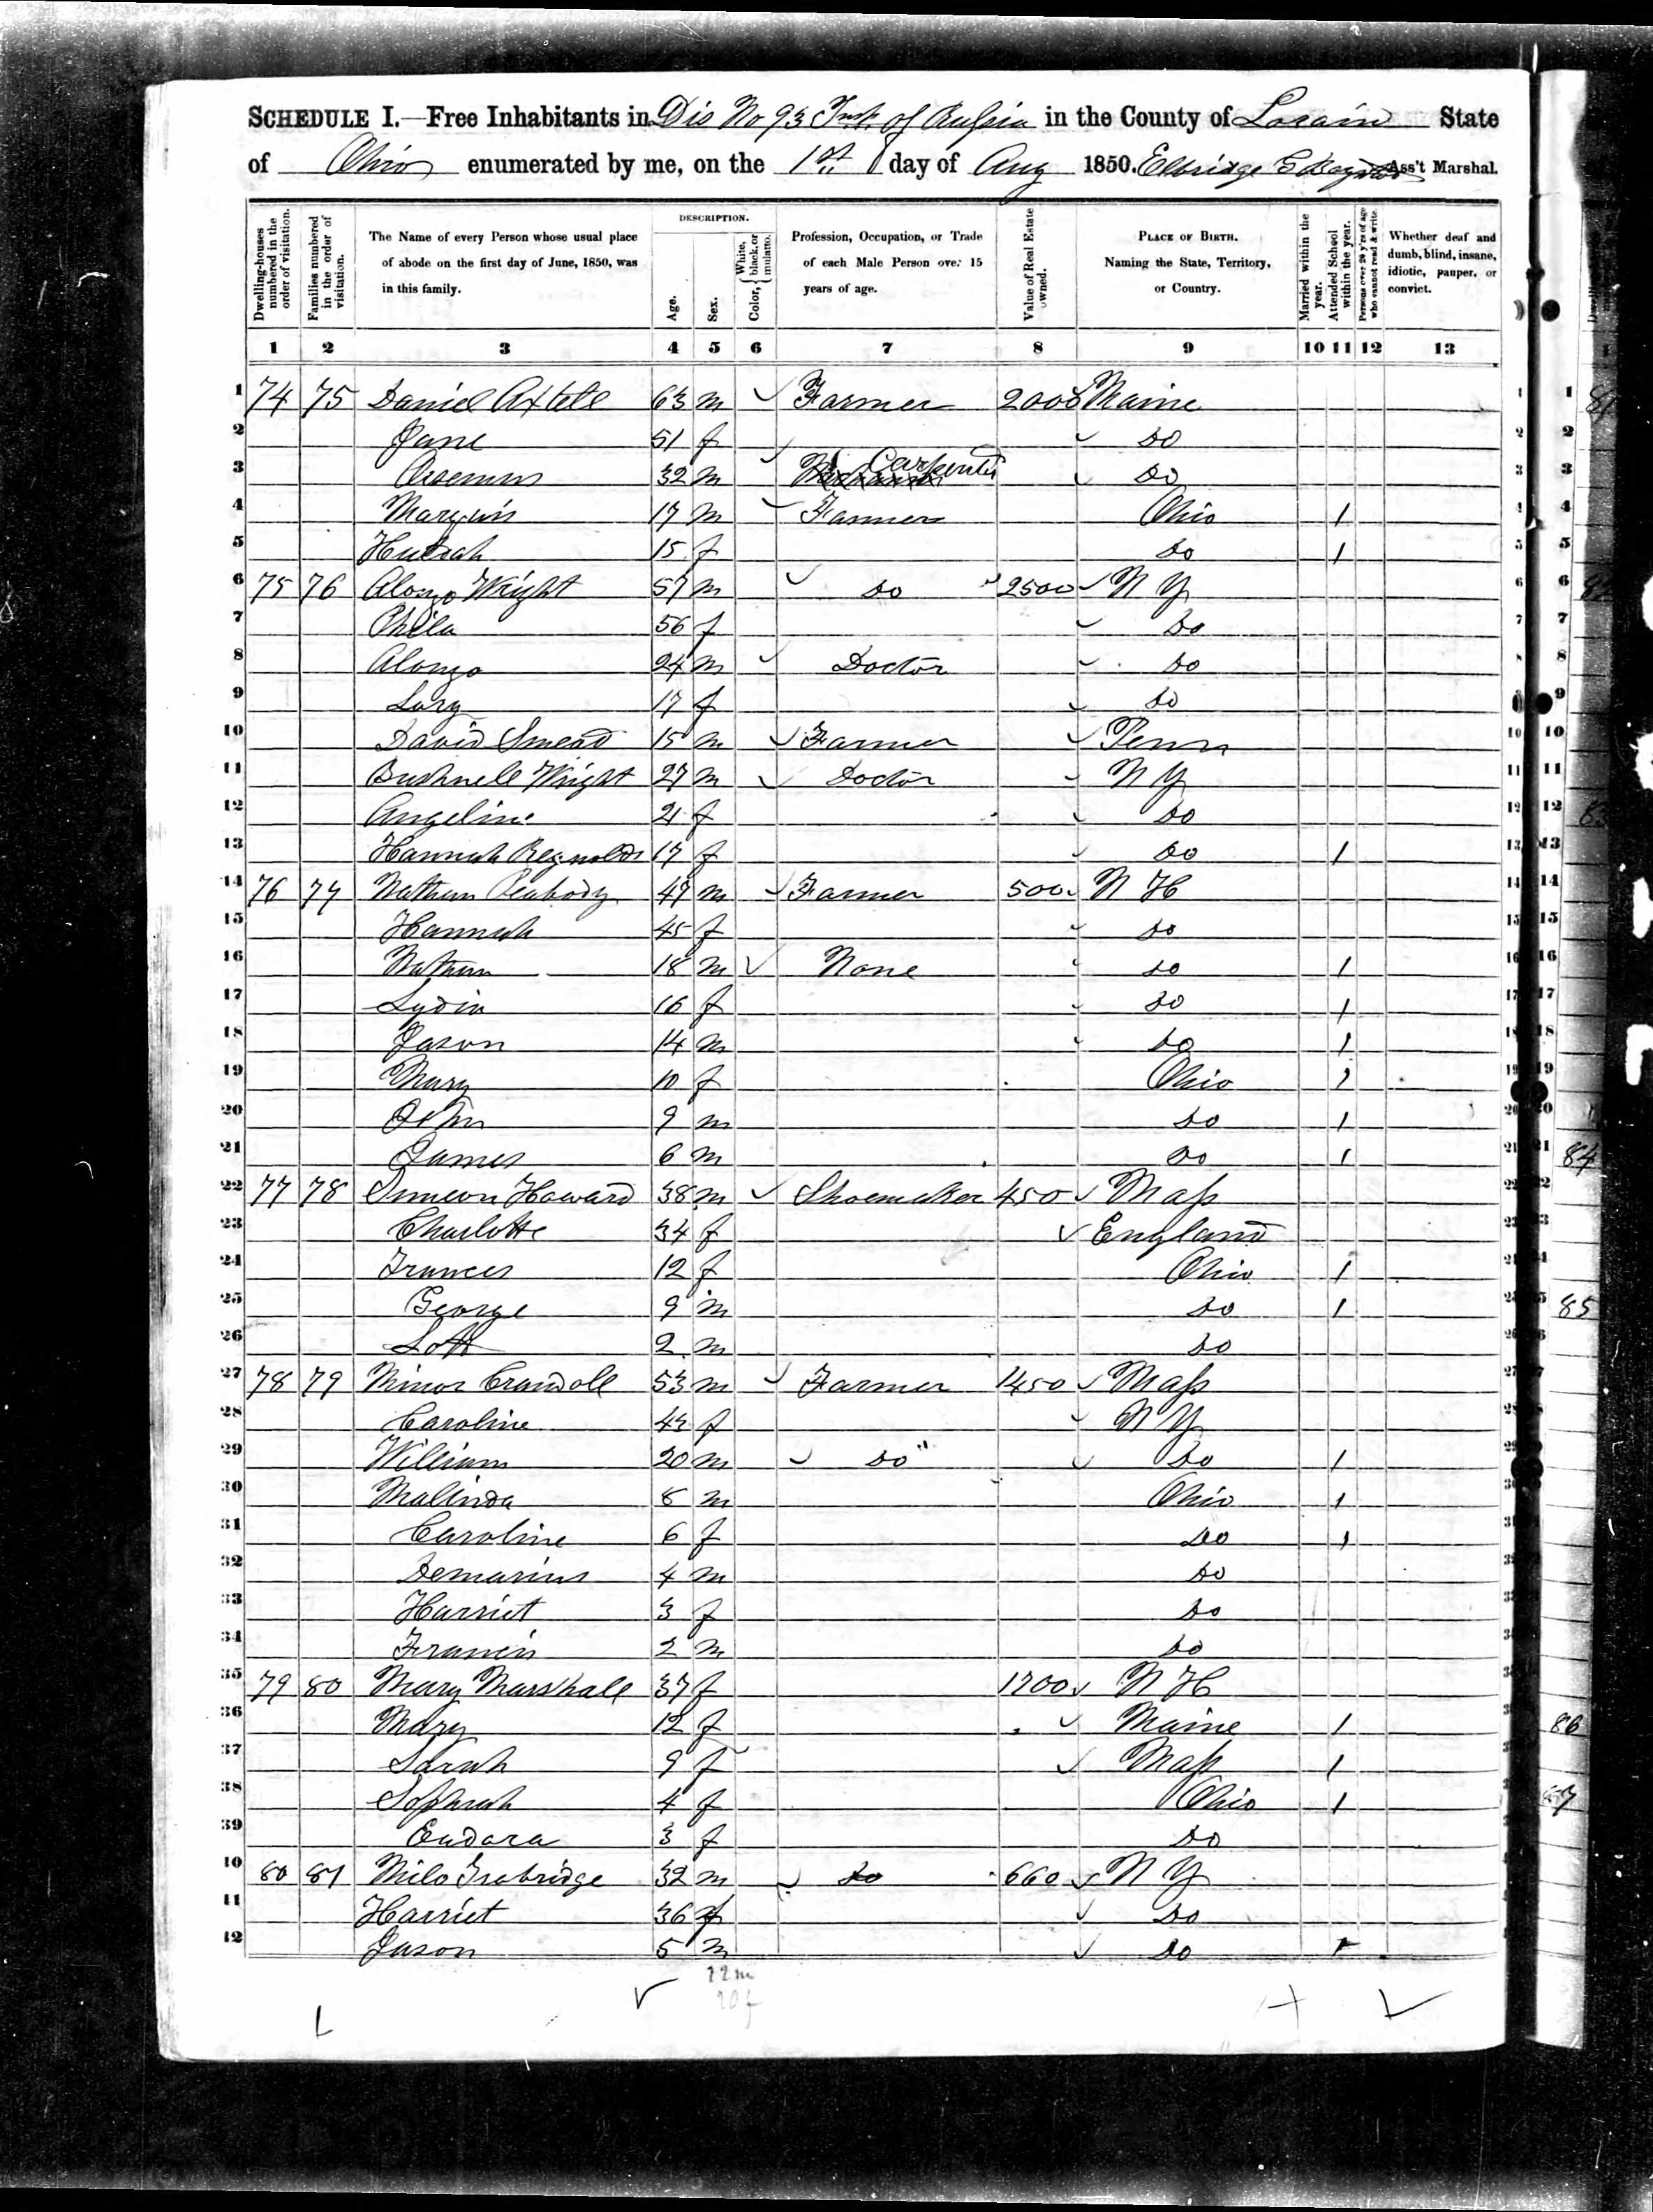 SCHEDULE I.—Free Inhabitants in Dis No 93 Twp. of Rußia in the County of Lorain State
of Ohio enumerated by me, on the 1st. day of Aug 1850. Elbridge G Ass't Marshal.
Dwelling-houses numbered in the order of visitation.
Families numbered in the order of visitation.
The Name of every Person whose usual place of abode on the first day of June, 1850, was in this family.
DESCRIPTION.
Age.
Sex.
Color, { White, black, or mulatto.
Profession, Occupation, or Trade of each Male Person over 15 years of age.
Value of Real Estate owned.
PLACE OF BIRTH. Naming the State, Territory, or Country.
Married within the year.
Attended School within the year.
Persons over 20 y'rs of age who cannot read & write.
Whether deaf and dumb, blind, insane, idiotic, pauper, or convict.
1 2 3 4 5 6 7 8 9 10 11 12 13
1 74 75 Daniel Axtell 63 m Farmer 2000 Maine
2 Jane 51 f Do
3 32 m Carpenter Do
4 17 m Farmer Ohio 1
5 Huldah 15 f Do 1
6 75 76 Alonzo Wright 57 m Do 2500 N Y
7 Phila 56 f Do
8 Alonzo 24 m Doctor Do
9 Lucy 17 f Do
10 David Smead 15 m Farmer Penn
11 Bushnell Wright 27 m Doctor N Y
12 Angeline 21 f Do
13 Hannah Reynolds 17 f Do 1
14 76 77 Nathan Peabody 47 m Farmer 500 N H
15 Hannah 45 f Do
16 Nathan 18 m None Do 1
17 Lydia 16 f Do 1
18 Jason 14 m Do 1
19 Mary 10 f Ohio 1
20 John 9 m Do 1
21 James 6 m Do 1
22 77 78 Simeon Howard 38 m Shoemaker 450 Maß
23 Charlotte 34 f England
24 Frances 12 f Ohio 1
25 George 9 m Do 1
26 Lott 2 m Do
27 78 79 Minor Crandall 53 m Farmer 1450 Maß
28 Caroline 43 f N Y
29 William 20 m Do " Do 1
30 Malinda 8 m Ohio 1
31 Caroline 6 f Do 1
32 Demarius 4 m Do
33 Harriet 3 f Do
34 Francis 2 m Do
35 79 80 Mary Marshall 37 f 1700 N H
36 Mary 12 f Maine 1
37 Sarah 9 f Maß 1
38 4 f Ohio 1
39 Eudora 3 f Do
10 80 81 Milo 32 m Do 660 N Y
11 Harriet 36 f Do
12 Jason 5 m Do 1
22 m
20 f